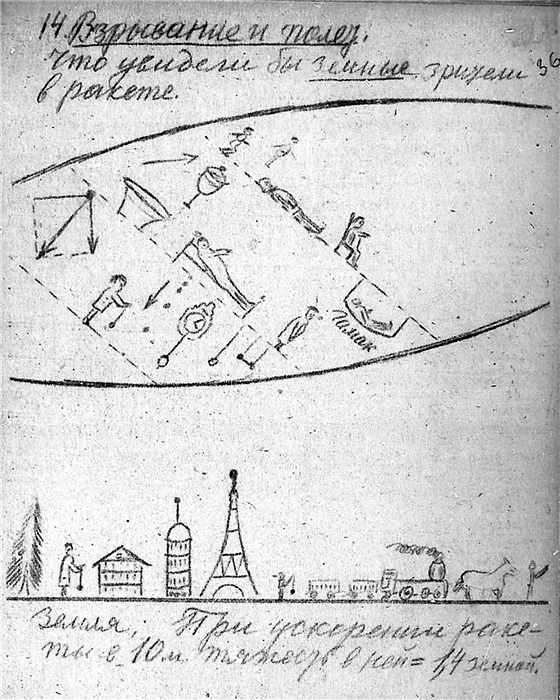 14. Взрывание и полет.
Что увидели бы земные зрители
36
в ракете.
Гамак
Земля. При ускорении раке-
ты в 10 м. тяжесть в ней = 1,4 земной.